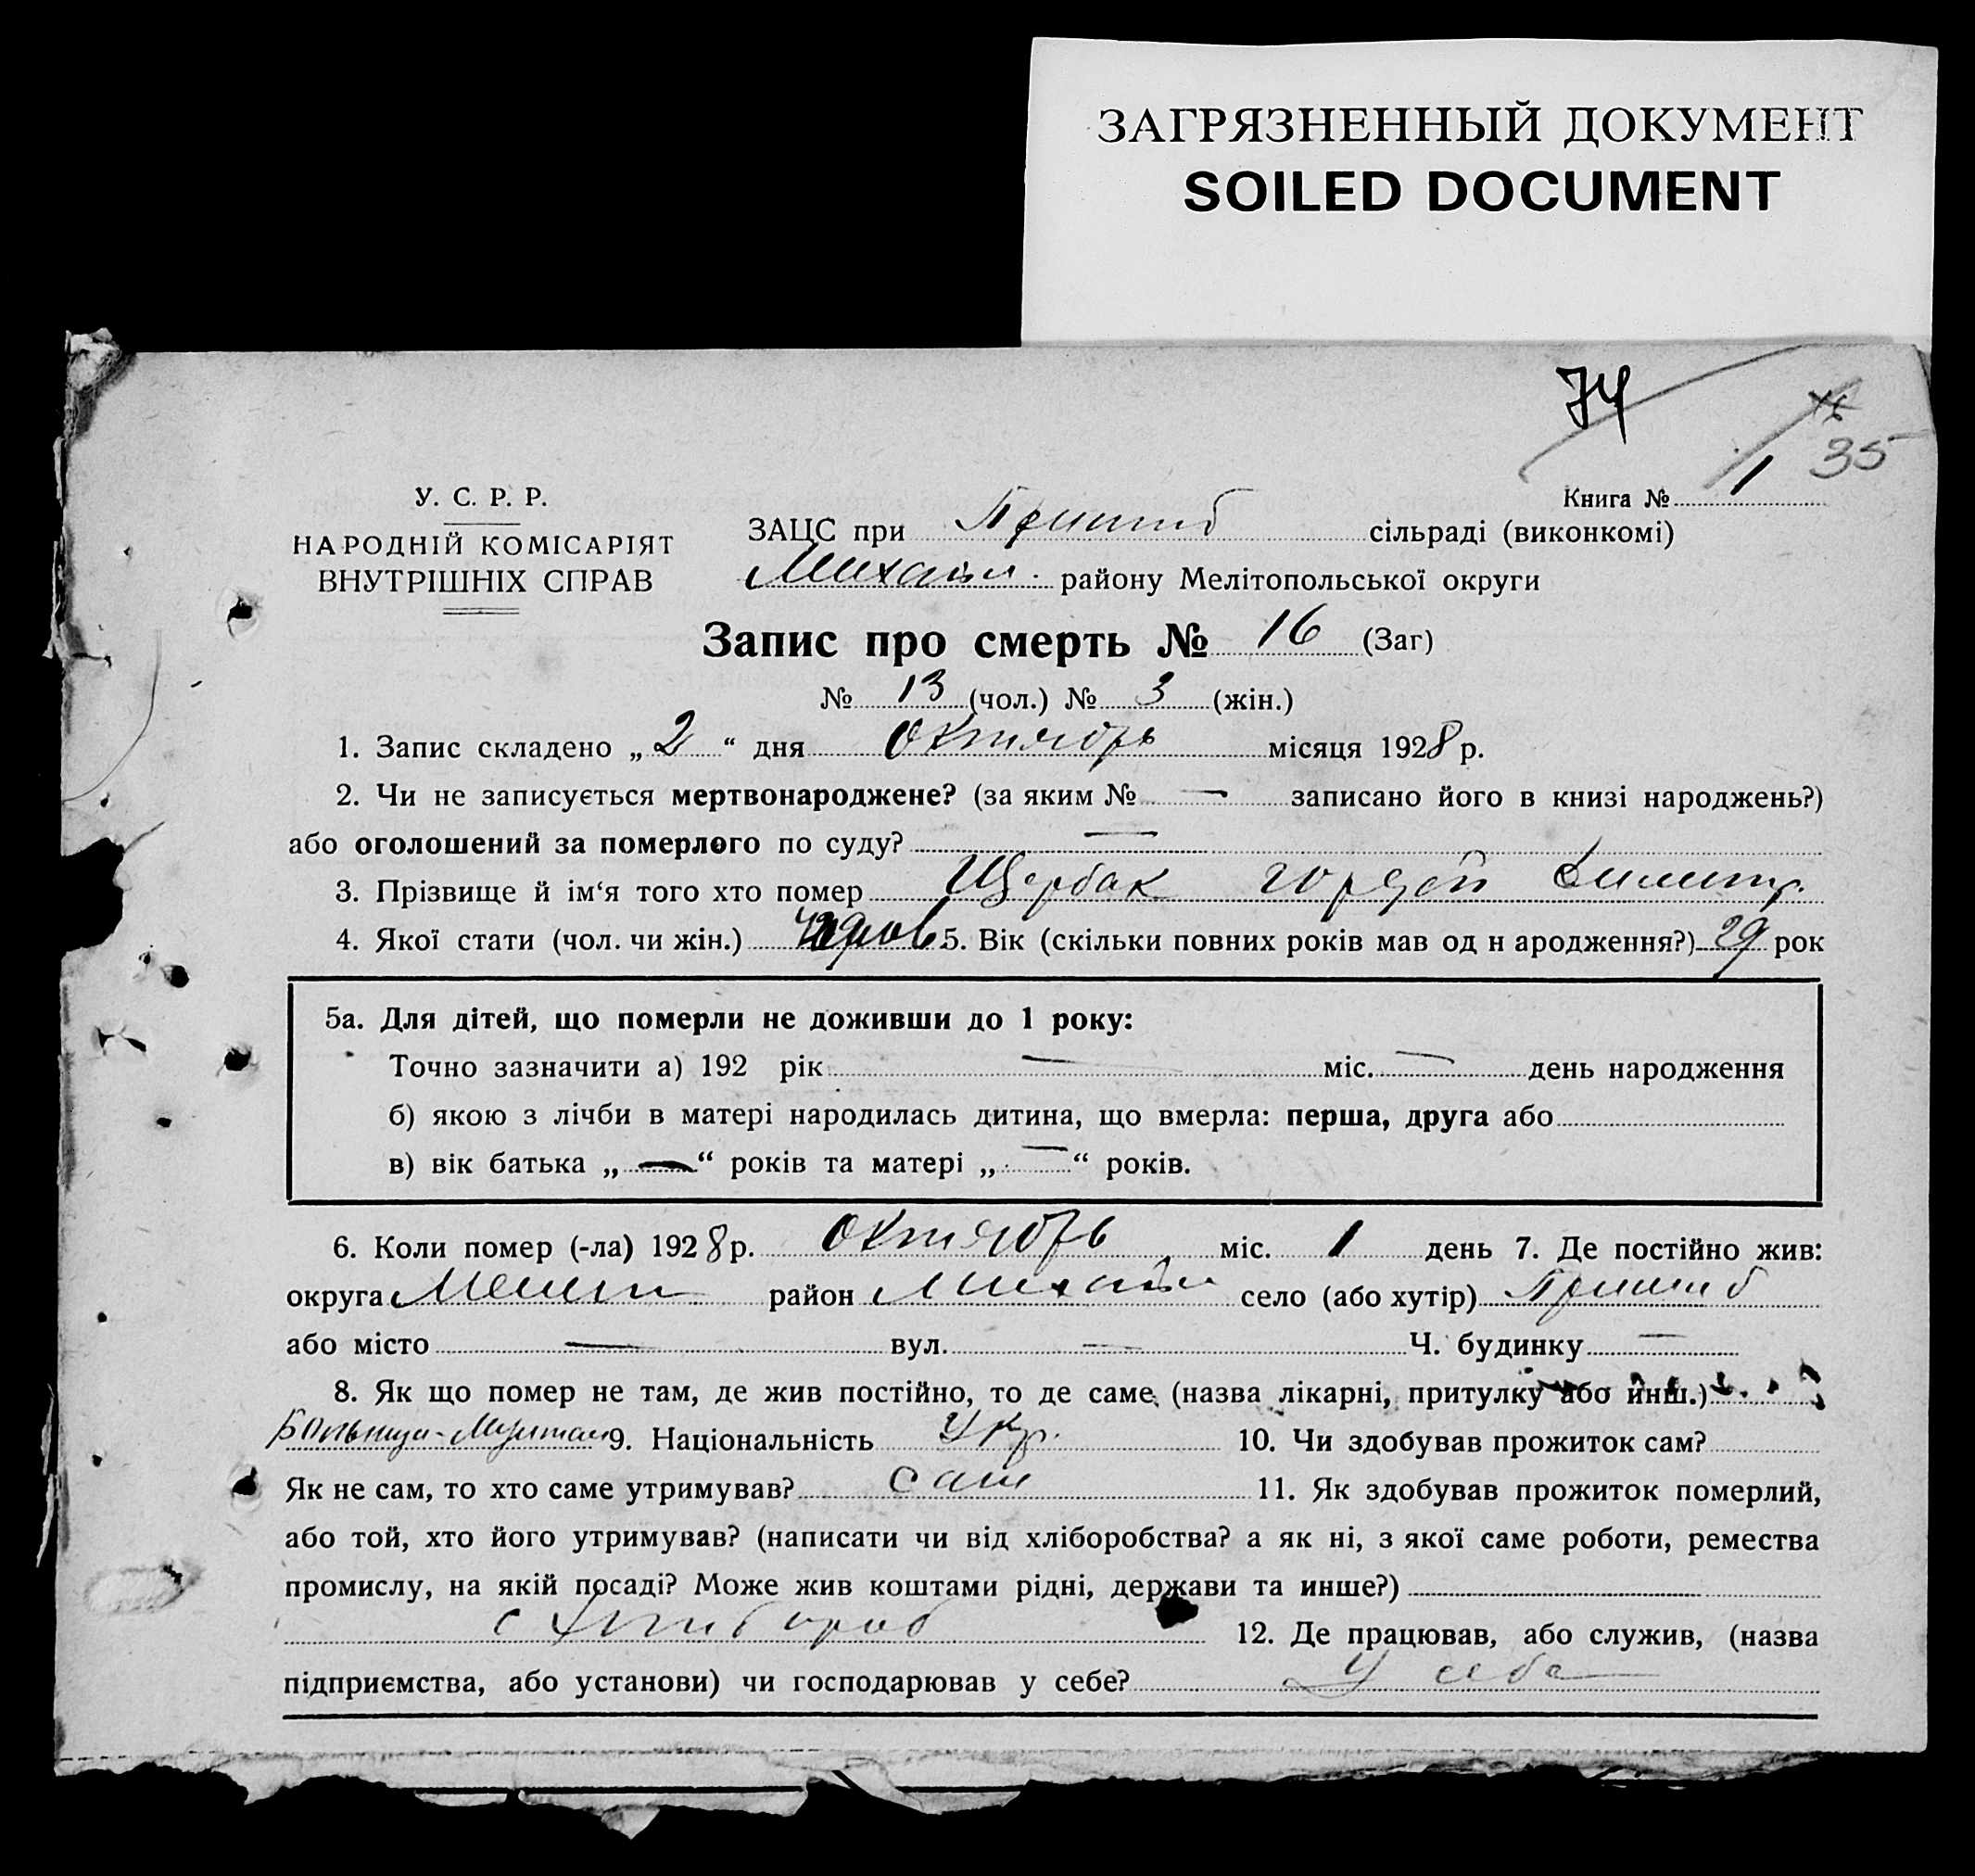 ЗАГРЯЗНЕННЫЙ ДОКУМЕНТ
SOILED DOCUMENT
74
35
У. С. Р. Р.
НАРОДНІЙ КОМІСАРІЯТ
ВНУТРІШНІХ СПРАВ
Книга № 1
ЗАЦС при Пришиб сільраді (виконкомі)
Михайл. району Мелітопольської округи
Запис про смерть № 16 (Заг)
№ 13 (чол.) № 3 (жін.)
1. Запис складено „ 2 “ дня Октябрь місяця 1928 р.
2. Чи не записується мертвонароджене? (за яким № — записано його в книзі народжень?)
або оголошений за померлого по суду? —
3. Прізвище й ім‘я того хто помер Щербак Гордей
4. Якої стати (чол. чи жін.) 5. Вік (скільки повних років мав од н ародження?) 29 рок
5а. Для дітей, що померли не доживши до 1 року:
Точно зазначити а) 192 рік — міс. — день народження
б) якою з лічби в матері народилась дитина, що вмерла: перша, друга або
в) вік батька „ — “ років та матері „ — “ років.
6. Коли помер (-ла) 1928 р. Октябрь міс. 1 день 7. Де постійно жив:
округа Мелит район Михайл село (або хутір) Пришиб
або місто — вул. — Ч. будинку —
8. Як що помер не там, де жив постійно, то де саме (назва лікарні, притулку або инш.)
9. Національність Укр. 10. Чи здобував прожиток сам?
Як не сам, то хто саме утримував? сам 11. Як здобував прожиток померлий,
або той, хто його утримував? (написати чи від хліборобства? а як ні, з якої саме роботи, ремества
промислу, на якій посаді? Може жив коштами рідні, держави та инше?)
с хлибороб 12. Де працював, або служив, (назва
підприємства, або установи) чи господарював у себе? У себе